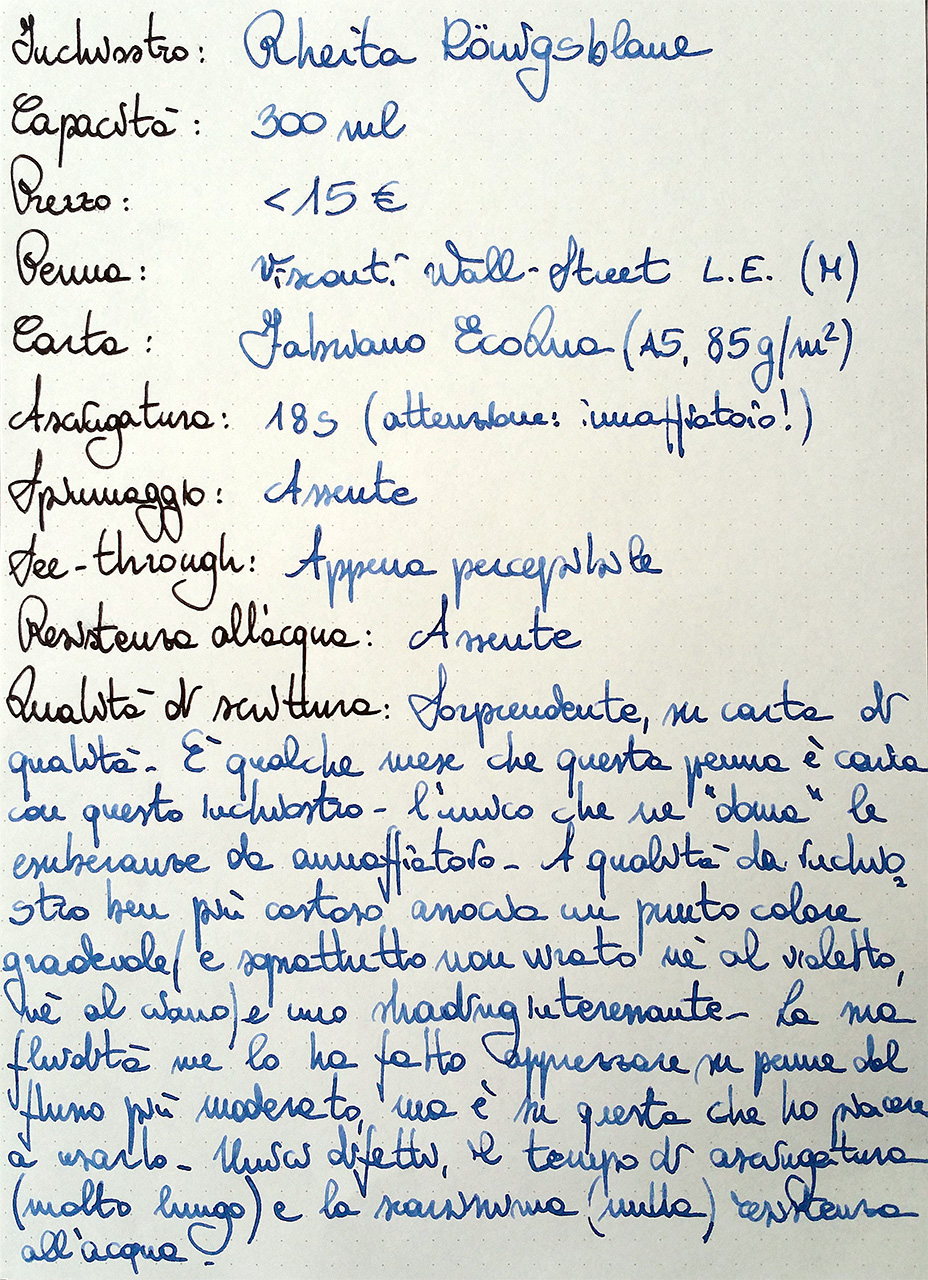 Inchiostro: Rheita Königsblaue
Capacità: 300 ml
Prezzo: <15 €
Penna: Visconti Wall-Street L.E. (M)
Carta: Fabriano EcoQua (A5, 85g/m²)
Asciugatura: 18s (attenzione: innaffiatoio!)
Spiumaggio: Assente
See-through: Appena percepibile
Resistenza all'acqua: Assente
Qualità di scrittura: Sorprendente, su carta di
qualità. È qualche mese che questa penna è carica
con questo inchiostro - l'unico che ne "doma" le
esuberanze da annaffiatoio. A qualità da inchio
stro ben più costoso associa un punto colore
gradevole (e soprattutto non virato né al violetto,
né al ciano) e uno shading interessante. La sua
fluidità me lo ha fatto apprezzare su penne dal
flusso più moderato, ma è su questa che ho piacere
a usarlo. Unici difetti, il tempo di asciugatura
(molto lungo) e la scarsissima (nulla) resistenza
all'acqua.